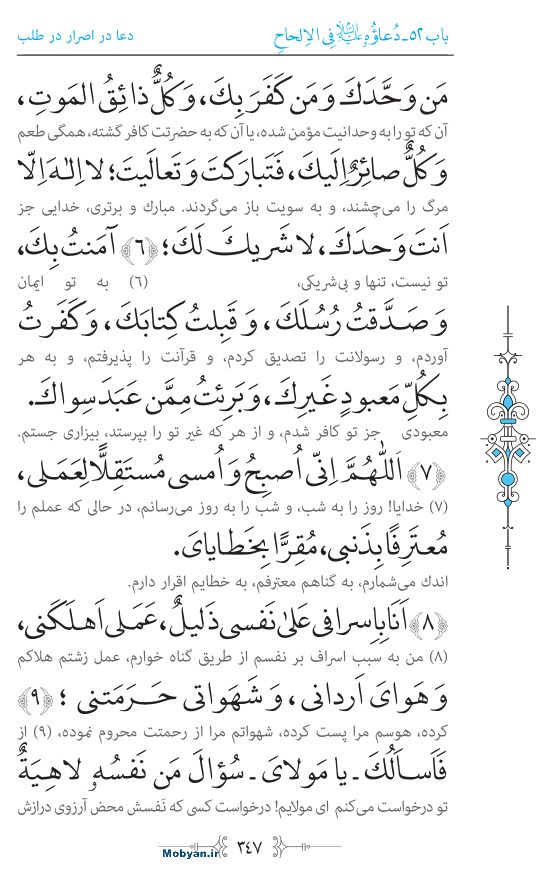 باب ۵۲ـ دُعاؤُه علیه‌السلام فِی الاِلحاحِ
دعا در اصرار در طلب
مَن وَحَّدَكَ وَمَن كَفَرَ بِكَ، وَكُلٌّ ذائِقُ المَوتِ،
آن كه تو را به وحدانیت مؤمن شده، یا آن كه به حضرتت كافر گشته، همگی طعم
وَكُلٌّ صائِرٌ اِلَیكَ، فَتَبارَكتَ وَتَعالَیتَ؛ لا اِلٰهَ اِلّا
مرگ را می‌چشند، و به سویت باز می‌گردند. مبارك و برتری، خدایی جز
اَنتَ وَحدَكَ، لا شَریكَ لَكَ؛ ﴿۶﴾ آمَنتُ بِكَ،
تو نیست، تنها و بی‌شریكی، (۶) به تو ایمان
وَ صَدَّقتُ رُسُلَكَ، وَ قَبِلتُ كِتابَكَ، وَ كَفَرتُ
آوردم، و رسولانت را تصدیق كردم، و قرآنت را پذیرفتم، و به هر
بِكُلِّ مَعبودٍ غَیرِكَ، وَ بَرِئتُ مِمَّن عَبَدَ سِواكَ.
معبودی جز تو كافر شدم، و از هر كه غیر تو را بپرستد، بیزاری جستم.
﴿۷﴾ اَللّٰهُمَّ اِنّی اُصبِحُ وَ اُمسی مُستَقِلًّا لِعَمَلی،
(۷) خدایا! روز را به شب، و شب را به روز می‌رسانم، در حالی كه عملم را
مُعتَرِفًا بِذَنبی، مُقِرًّا بِخَطایایَ.
اندك می‌شمارم، به گناهم معترفم، به خطایم اقرار دارم.
﴿۸﴾ اَنَا بِاِسرافی عَلیٰ نَفسی ذَلیلٌ، عَمَلی اَهلَكَنی،
(۸) من به سبب اسراف بر نفسم از طریق گناه خوارم، عمل زشتم هلاكم
وَ هَوایَ اَردانی، وَ شَهَواتی حَرَمَتنی؛ ﴿۹﴾
كرده، هوسم مرا پست كرده، شهواتم مرا از رحمتت محروم نموده، (۹) از
فَاَساَلُكَ ـ یا مَولایَ ـ سُؤالَ مَن نَفسُهُ لاهِیَةٌ
تو درخواست می‌كنم ای مولایم! درخواست كسی كه نَفسش محض آرزوی درازش
۳۴۷
Mobyan.ir